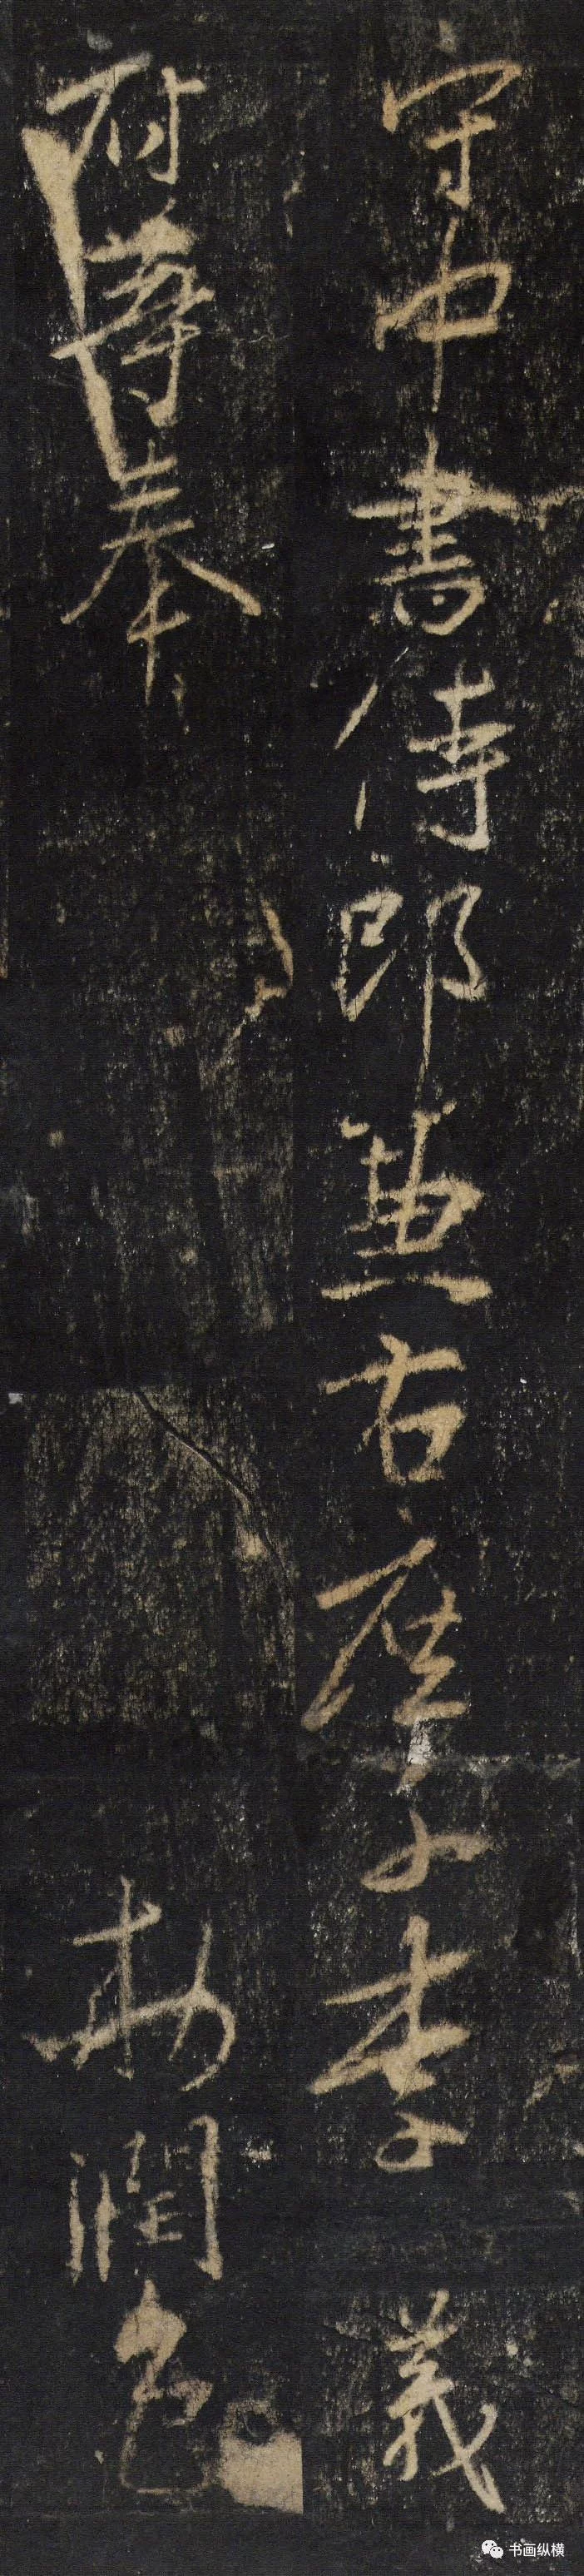 守中書侍郎兼右庶子李義
府薛奉 勅潤色
书画纵横